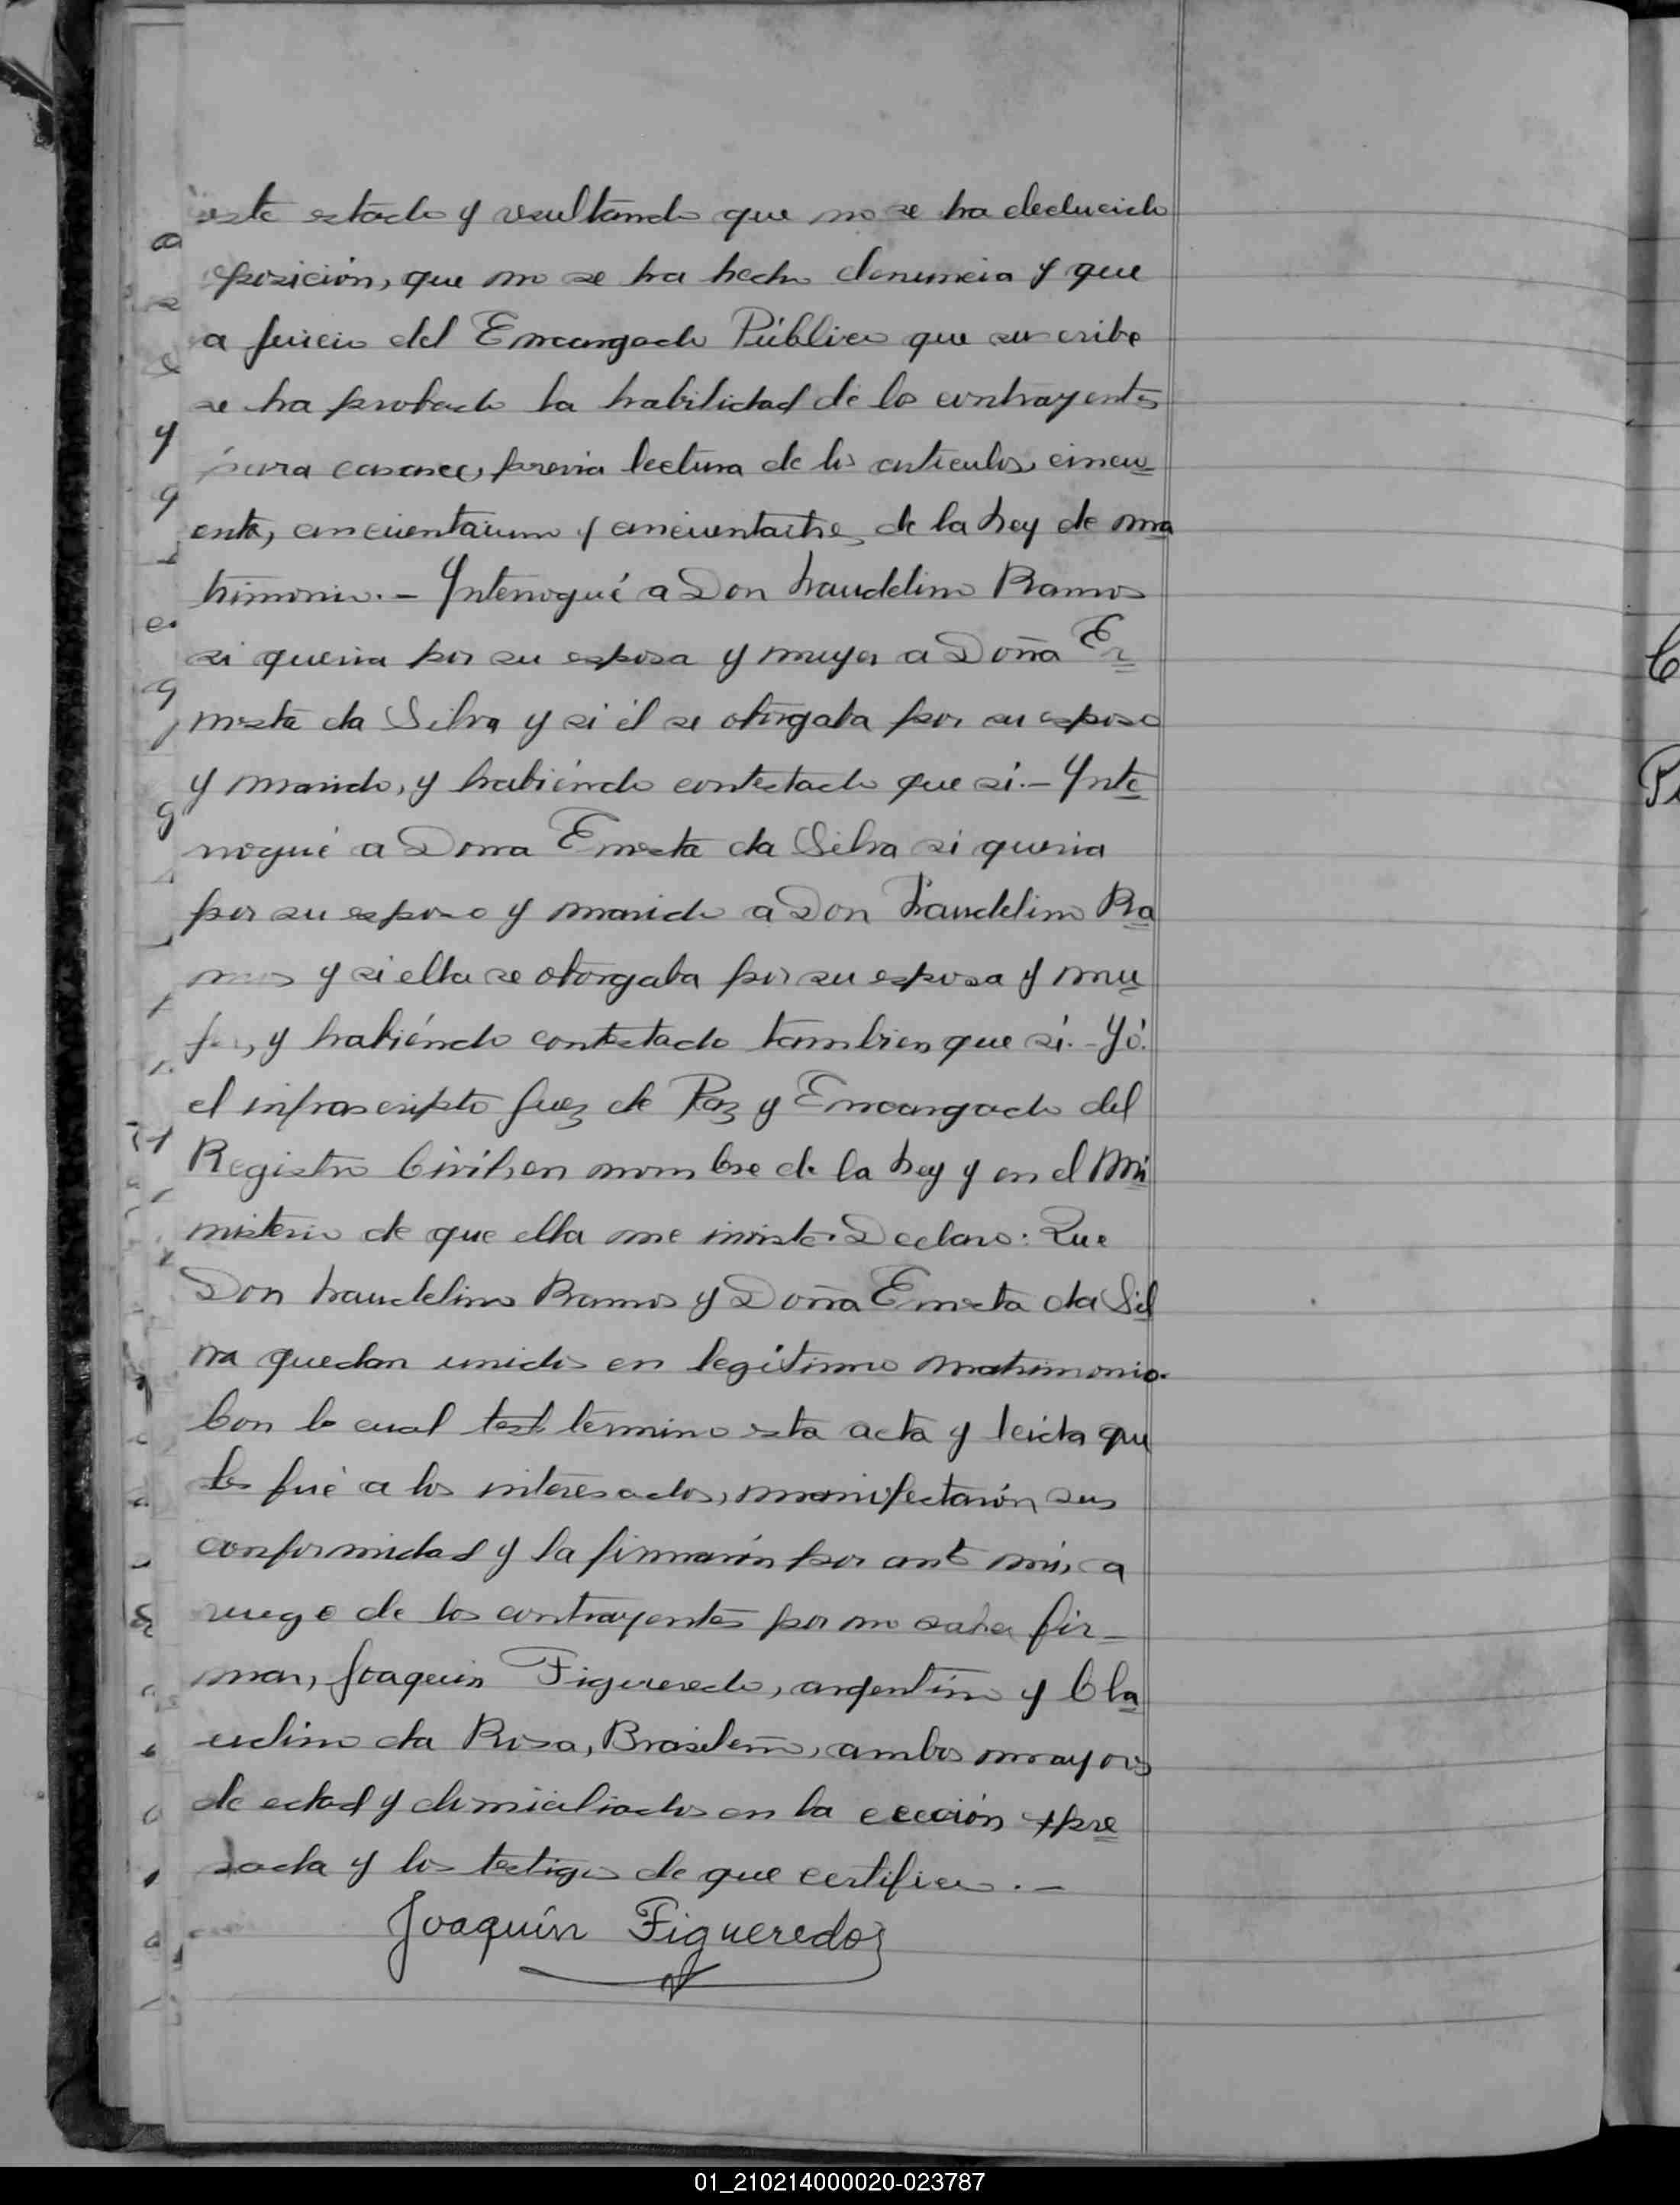 este estado y resultando que no se ha deducido
oposición, que no se ha hecho denuncia y que
a juicio del Encargado Público que suscribe
se ha probado la habilidad de los contrayentes
para casarse, previa lectura de los articulos, cincu
enta, cincuentaiuno y cincuentaitres de la Ley de ma
trimonio.- Interrogué a Don Laudelino Ramos
si queria por su esposa y mujer a Doña Er
nesta da Silva y si él se otorgaba por su esposo
y marido, y habiéndo contestado que si.- Inte
rrogué a Dona Ernesta da Silva si queria
por su esposo y marido a Don Laudelino Ra
mos y si ella se otorgaba por su esposa y mu
jer, y habiéndo contestado tambien que si.- Yó.
el infrascripto Juez de Paz y Encargado del
Registro Civil, en nombre de la Ley y en el Mi
nisterio de que ella me inviste. Declaro: Que
Don Laudelino Ramos y Doña Ernesta da Sil
va quedan unidos en legítimo matrimonio.
Con lo cual termino esta acta y leida que
les fué a los interesados, manifestarón sus
conformidad y la firmarón por ante mi, a
ruego de los contrayentes por no saber fir-
mar, Joaquin Figueredo, argentino y Cla
udino da Rosa, Brasileño, ambos mayores
de edad y domiciliados en la sección expre
sada y los testigos de que certifico.-
Joaquín Figueredo
01_210214000020-023787